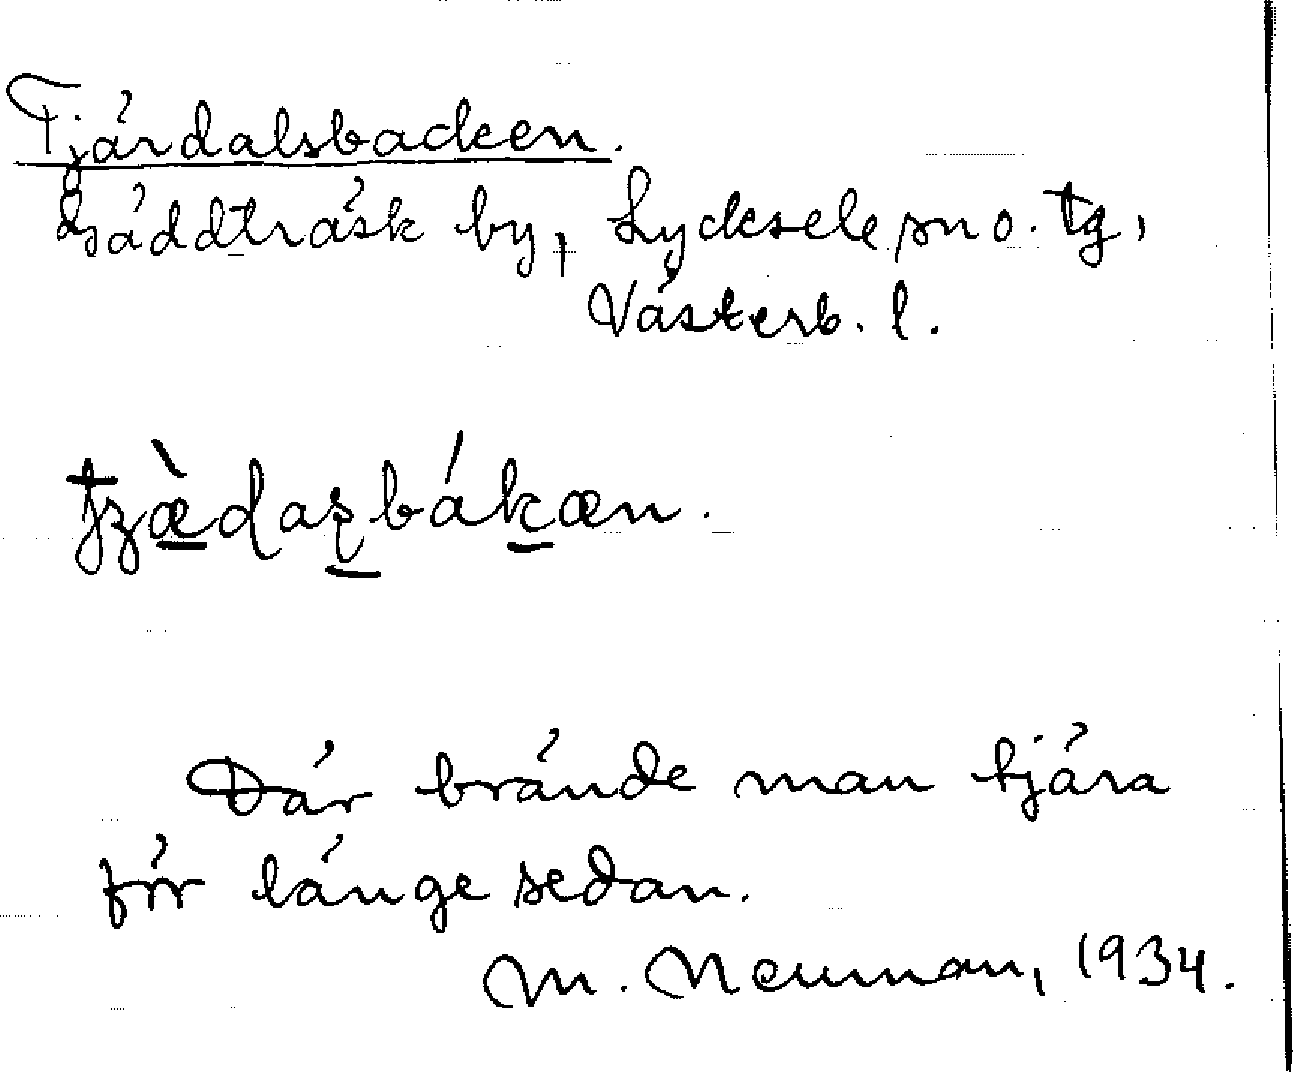 Tjärdalsbacken.
Gäddträsk by, Lycksele sn o. tg,
Västerb. l.
Där brände man tjära
för länge sedan.
M. Neuman, 1934.